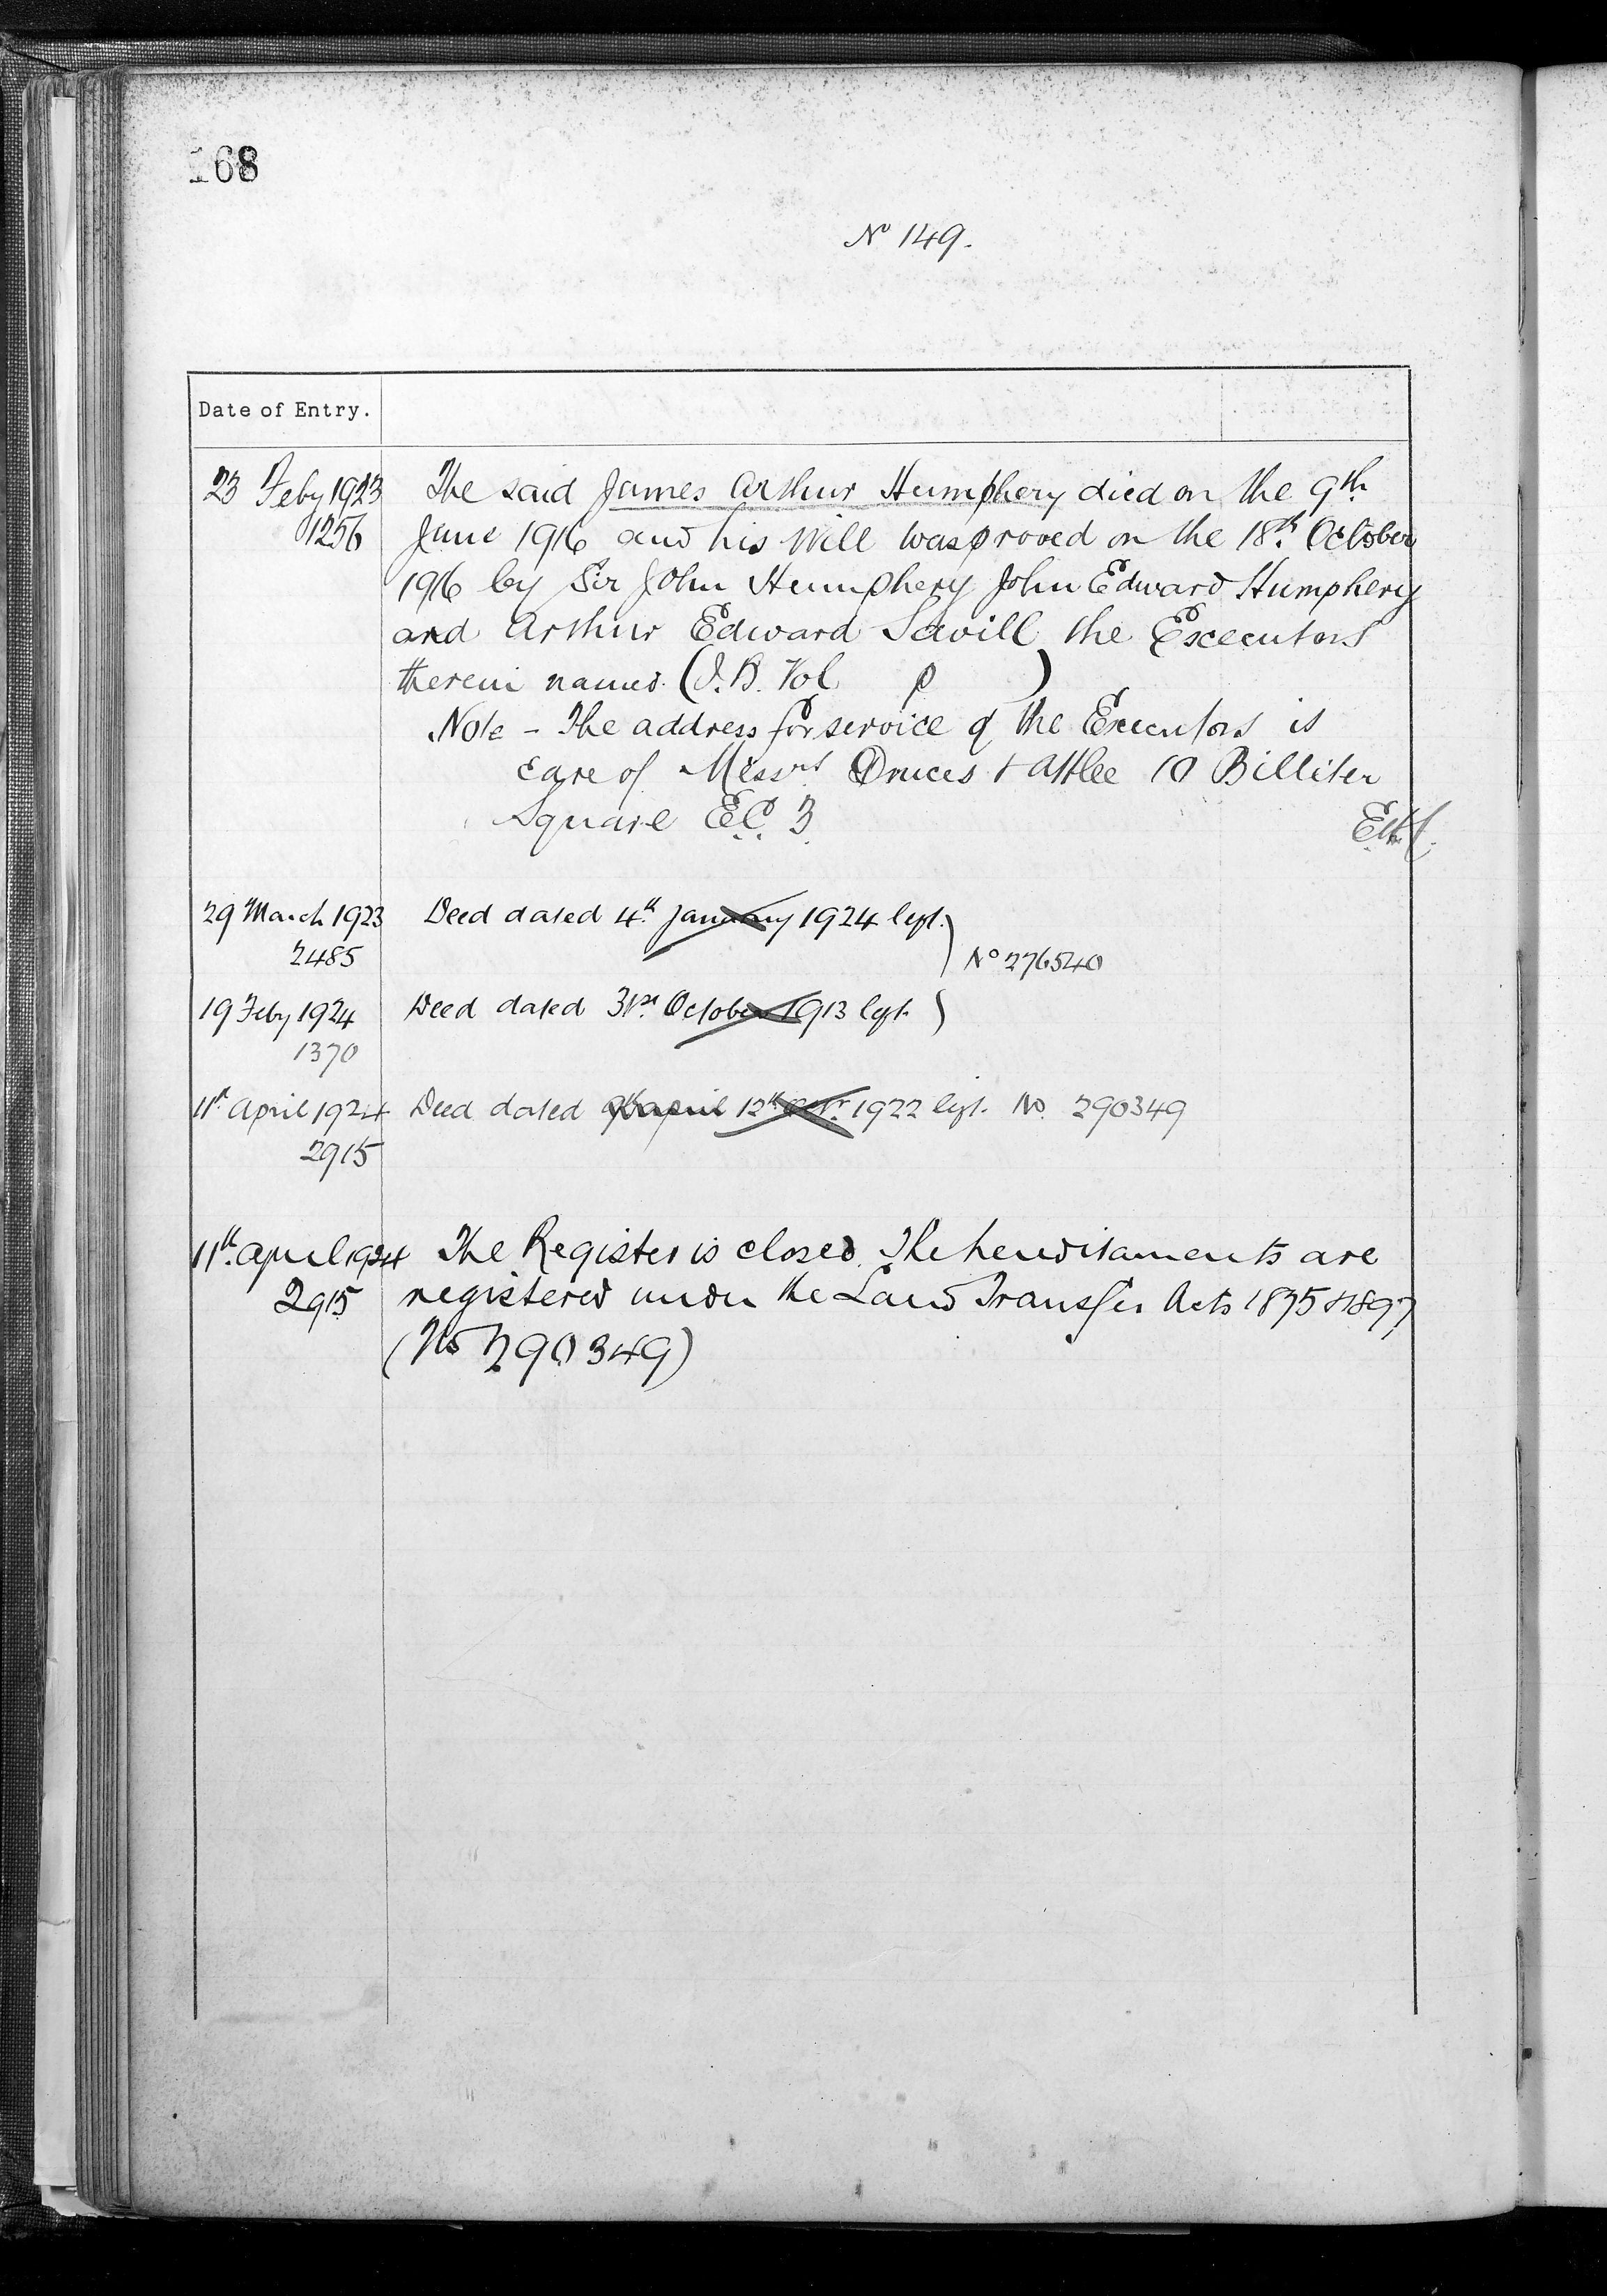 168
No 149.
Date of Entry.
23 Feby 1923 The said James Arthur Humphery died on the 9th
1256 June 1916 and his Will was proved on the 18th October
1916 by Sir John Humphery John Edward Humphery
and Arthur Edward Savill the Executors
therein named (I.B. Vol p )
Note - The address for service of the Executors is
care of Messrs Druces & Attlee 10 Billiter
Square E.C. 3
29 March 1923 Deed dated 4th January 1924 left.
2485 No 276540
19 Feby 1924 Deed dated 31st October 1913 left.
1370
11th April 1924 Deed dated 12th Octr 1922 left. No. 290349
2915
11th April 1924 The Register is closed. The hereditaments are
2915 registered under the Land Transfer Acts 1875 & 1897
(No 290349)